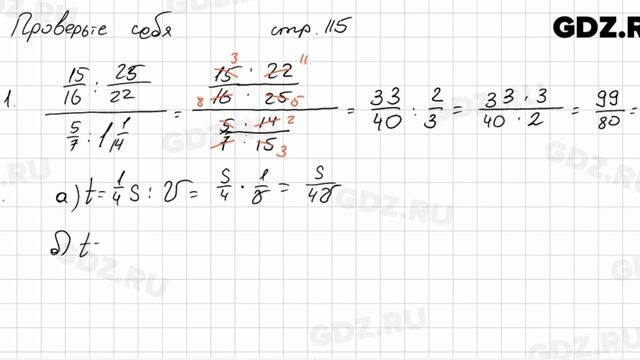 Проверьте себя стр. 115
GDZ.RU
1. 15/16 : 25/22 / 5/7 : 1 1/14 = 15 · 22 / 16 · 25 / 5 · 14 / 7 · 15 = 33/40 : 2/3 = 33 · 3 / 40 · 2 = 99/80 =
3 11
8 5
2
3
а) t = 1/4 S : v = S/4 · 1/v = S/4v
б) t =
GDZ.RU
GDZ.RU
GDZ.RU
GDZ.RU